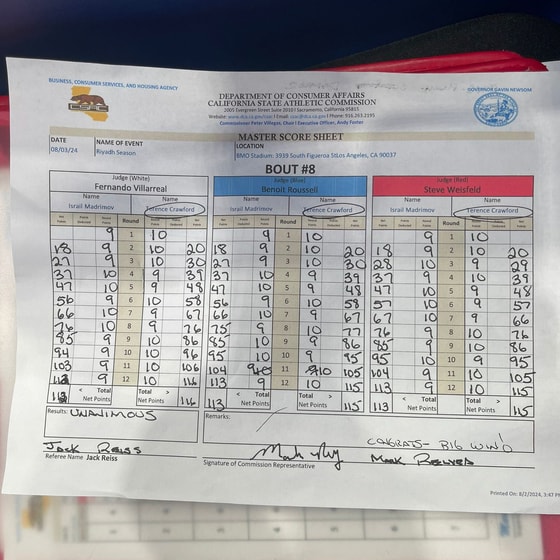 BUSINESS, CONSUMER SERVICES, AND HOUSING AGENCY
GOVERNOR GAVIN NEWSOM
DEPARTMENT OF CONSUMER AFFAIRS
CALIFORNIA STATE ATHLETIC COMMISSION
2005 Evergreen Street Suite 2010 | Sacramento, California 95815
MASTER SCORE SHEET
DATE NAME OF EVENT LOCATION
08/03/24 Riyadh Season BMO Stadium: 3939 South Figueroa StLos Angeles, CA 90037
BOUT #8
Judge (White) Judge (Blue) Judge (Red)
Fernando Villarreal Benoit Roussell Steve Weisfeld
Name Name Name Name Name Name
Israil Madrimov Terence Crawford Israil Madrimov Terence Crawford Israil Madrimov Terence Crawford
Net Points Points Deducted Round Points Round Round Points Points Deducted Net Points Net Points Points Deducted Round Points Round Round Points Points Deducted Net Points Net Points Points Deducted Round Points Round Round Points Points Deducted Net Points
9 1 10 9 1 10 9 1 10
18 9 2 10 20 18 9 2 10 20 18 9 2 10 20
27 9 3 10 30 27 9 3 10 30 28 10 3 9 29
37 10 4 9 39 37 10 4 9 39 37 9 4 10 39
47 10 5 9 48 47 10 5 9 48 47 10 5 9 48
56 9 6 10 58 56 9 6 10 58 57 10 6 9 57
66 10 7 9 67 66 10 7 9 67 67 10 7 9 66
76 10 8 9 76 75 9 8 10 77 76 9 8 10 76
85 9 9 10 86 85 10 9 9 86 85 9 9 10 86
94 9 10 10 96 95 10 10 9 95 95 10 10 9 95
103 9 11 10 106 104 9 11 10 105 104 9 11 10 105
9 12 10 116 113 9 12 10 115 113 9 12 10 115
< Total > < Total > < Total >
Net Points Net Points 116 113 Net Points Net Points 115 113 Net Points Net Points 115
Results: UNANIMOUS
Remarks:
CONGRATS- BIG WIN'D
JACK REISS
Referee Name Jack Reiss
Signature of Commission Representative
Printed On: 8/2/2024, 3:47 P